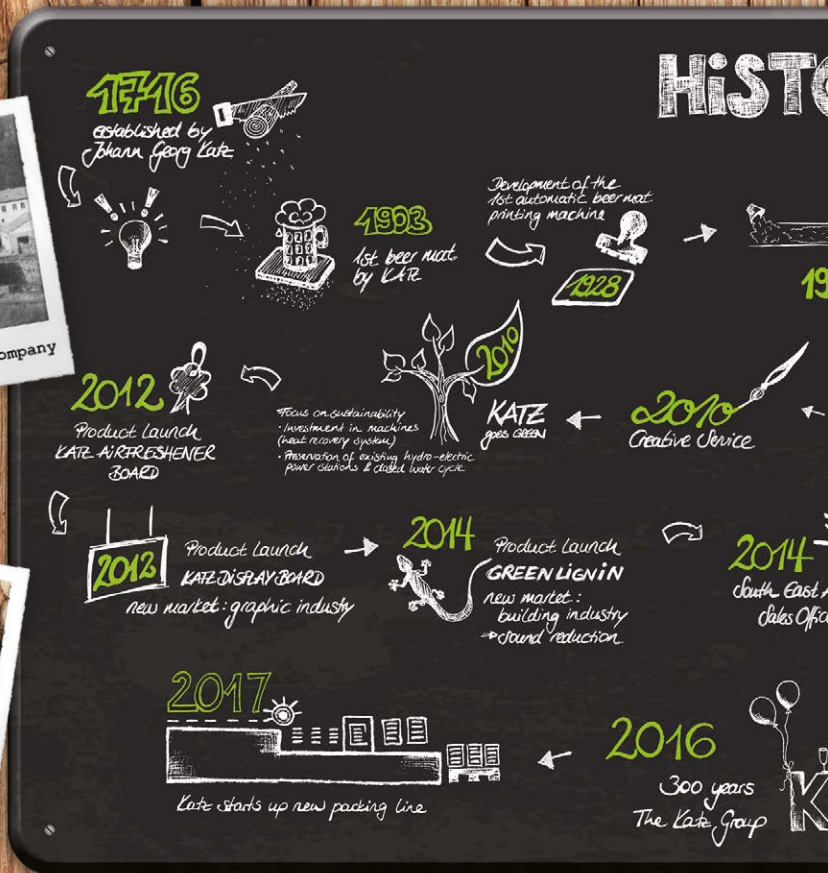 HiSTO
1716
established by
Johann Georg Katz
1903
1st beer mat
by KATZ
Development of the
1st automatic beer mat
printing machine
1928
19
ompany
2012
Product Launch
KATZ AiRFRESHENER
BOARD
Focus on sustainability
• Investment in machines
(heat recovery system)
• Preservation of existing hydro-electric
power stations & closed water cycle
2010
KATZ
goes GREEN
2010
Creative Service
2012
Product Launch
KATZ DiSPLAY BOARD
new market: graphic industry
2014
Product Launch
GREEN LiGNiN
new market:
building industry
sound reduction
2014
South East A
Sales Offic
2017
Katz starts up new packing line
2016
300 years
The Katz Group
K